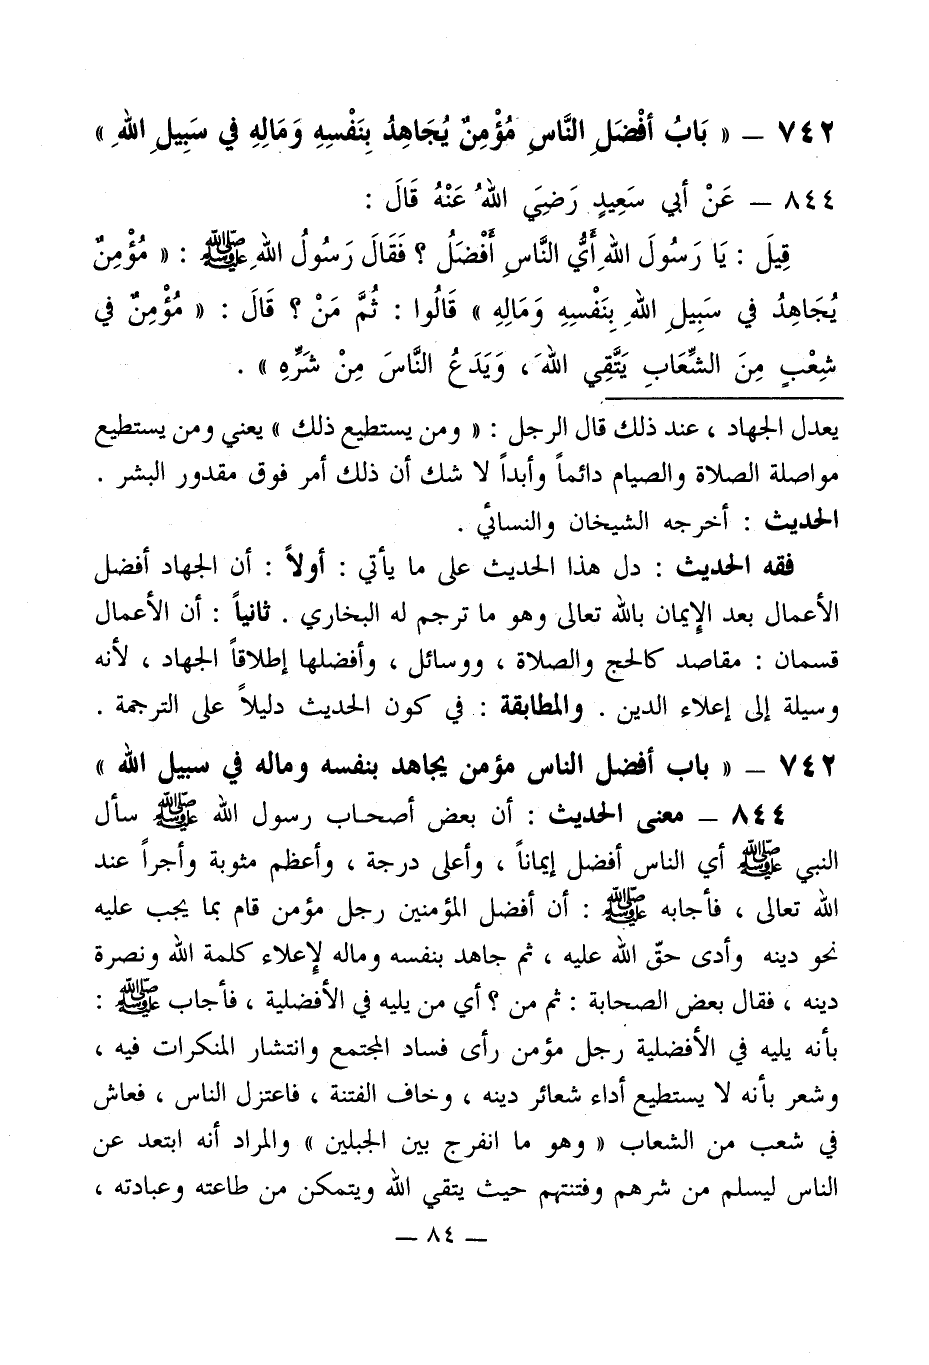 ٧٤٢ – « بَابُ أفْضَلِ النَّاسِ مُؤْمِنٌ يُجَاهِدُ بِنَفْسِهِ وَمَالِهِ في سَبِيلِ اللهِ »
٨٤٤ – عَنْ أبي سَعِيدٍ رَضِيَ اللهُ عَنْهُ قَالَ :
قِيلَ : يَا رَسُولَ اللهِ أَيُّ النَّاسِ أَفْضَلُ ؟ فَقَالَ رَسُولُ اللهِ ﷺ : « مُؤْمِنٌ
يُجَاهِدُ في سَبِيلِ اللهِ بِنَفْسِهِ وَمَالِهِ » قَالُوا : ثُمَّ مَنْ ؟ قَالَ : « مُؤْمِنٌ في
شِعْبٍ مِنَ الشِّعَابِ يَتَّقِي اللهَ ، وَيَدَعُ النَّاسَ مِنْ شَرِّهِ » .
يعدل الجهاد ، عند ذلك قال الرجل : « ومن يستطيع ذلك » يعني ومن يستطيع
مواصلة الصلاة والصيام دائماً وأبداً لا شك أن ذلك أمر فوق مقدور البشر .
الحديث : أخرجه الشيخان والنسائي .
فقه الحديث : دل هذا الحديث على ما يأتي : أولاً : أن الجهاد أفضل
الأعمال بعد الإيمان بالله تعالى وهو ما ترجم له البخاري . ثانياً : أن الأعمال
قسمان : مقاصد كالحج والصلاة ، ووسائل ، وأفضلها إطلاقاً الجهاد ، لأنه
وسيلة إلى إعلاء الدين . والمطابقة : في كون الحديث دليلاً على الترجمة .
٧٤٢ – « باب أفضل الناس مؤمن يجاهد بنفسه وماله في سبيل الله »
٨٤٤ – معنى الحديث : أن بعض أصحاب رسول الله ﷺ سأل
النبي ﷺ أي الناس أفضل إيماناً ، وأعلى درجة ، وأعظم مثوبة وأجراً عند
الله تعالى ، فأجابه ﷺ : أن أفضل المؤمنين رجل مؤمن قام بما يجب عليه
نحو دينه وأدى حقّ الله عليه ، ثم جاهد بنفسه وماله لإعلاء كلمة الله ونصرة
دينه ، فقال بعض الصحابة : ثم من ؟ أي من يليه في الأفضلية ، فأجاب ﷺ :
بأنه يليه في الأفضلية رجل مؤمن رأى فساد المجتمع وانتشار المنكرات فيه ،
وشعر بأنه لا يستطيع أداء شعائر دينه ، وخاف الفتنة ، فاعتزل الناس ، فعاش
في شعب من الشعاب « وهو ما انفرج بين الجبلين » والمراد أنه ابتعد عن
الناس ليسلم من شرهم وفتنتهم حيث يتقي الله ويتمكن من طاعته وعبادته ،
– ٨٤ –